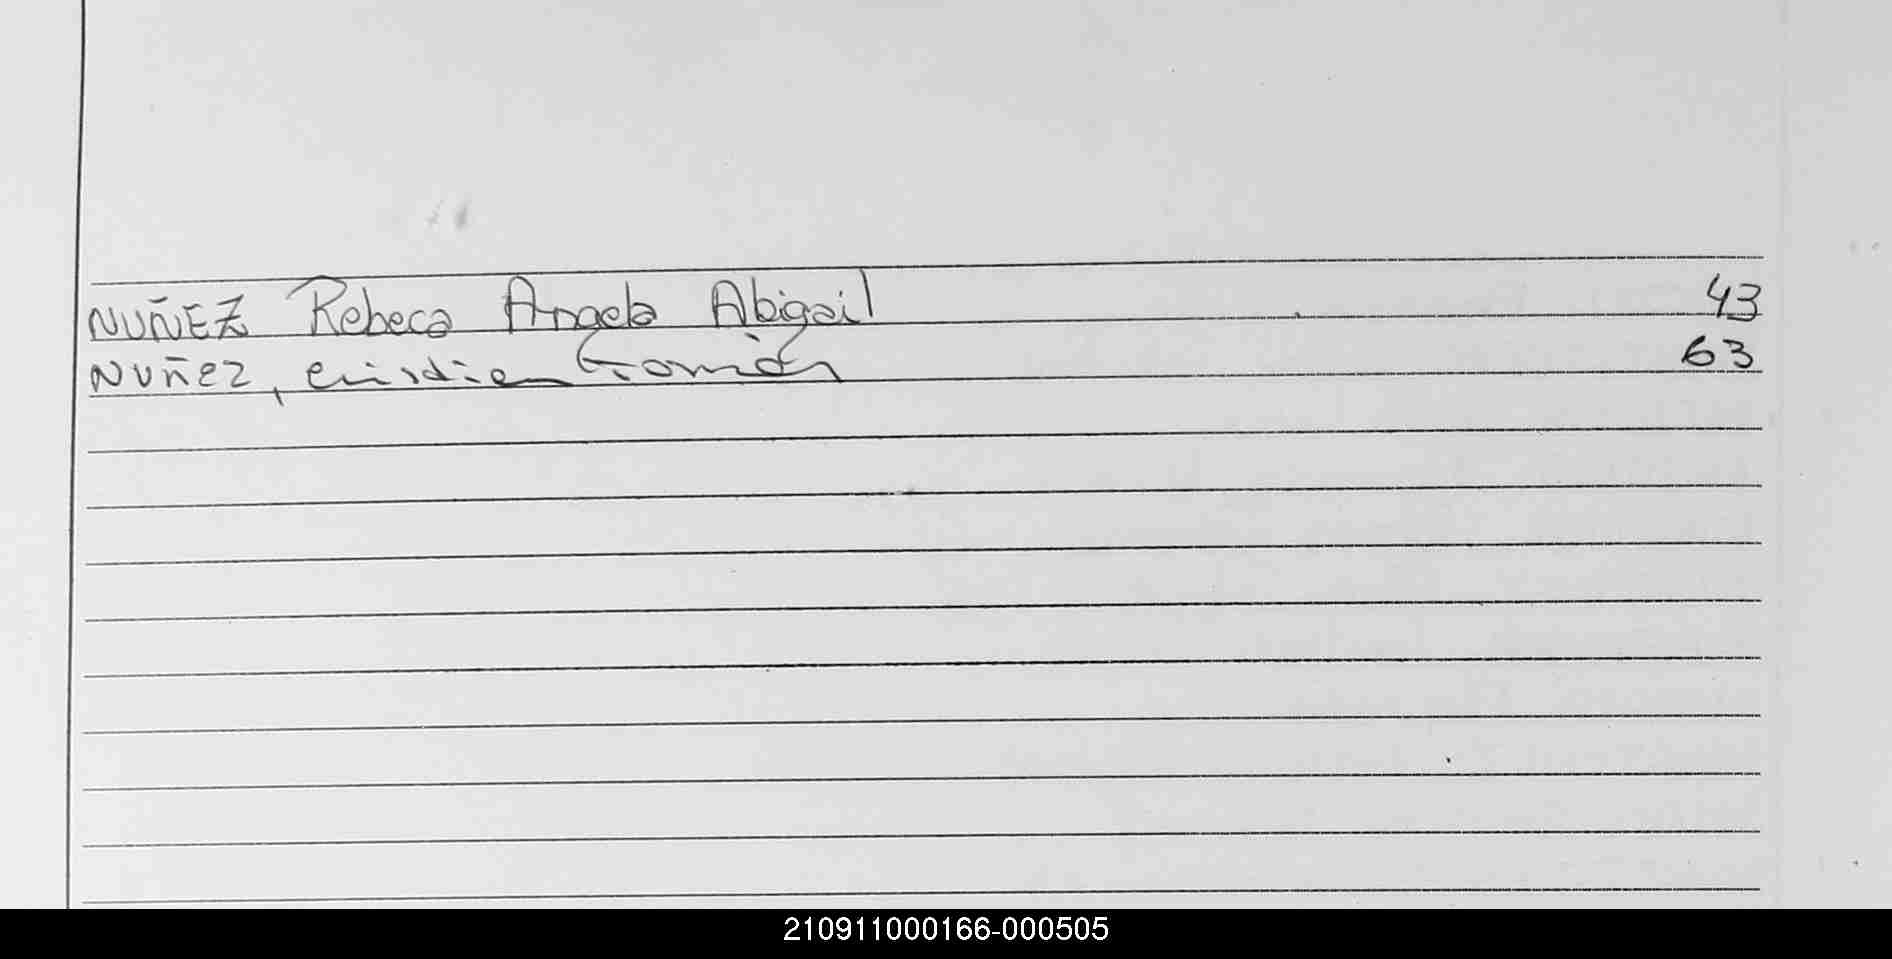 NUÑEZ Rebeca Angela Abigail 43
Nuñez, Cristian 63
210911000166-000505